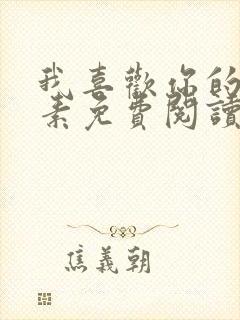 我喜歡你的
素免費閱讀
焦義朝